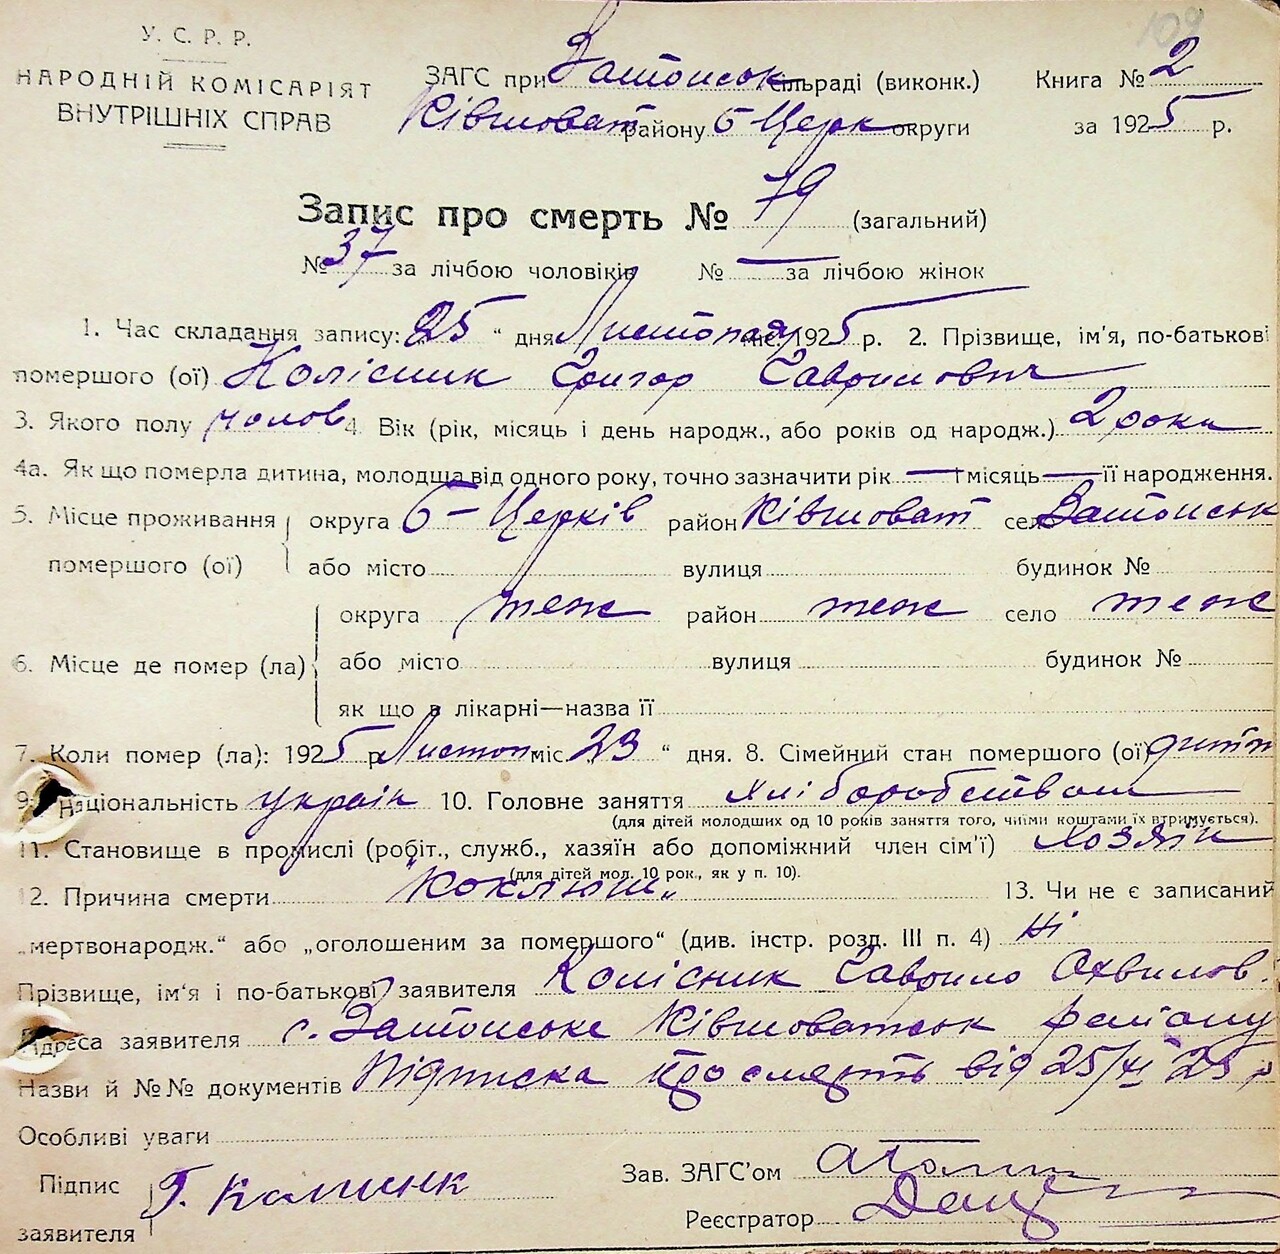 109
У. С. Р. Р.
НАРОДНІЙ КОМІСАРІЯТ
ВНУТРІШНІХ СПРАВ
ЗАГС при Затонськ сільраді (виконк.) Книга № 2
Ківшоват району Б-Церк округи за 1925 р.
Запис про смерть № 79 (загальний)
№ 37 за лічбою чоловіків № — за лічбою жінок
1. Час складання запису: 25 “ дня Листопад міс. 1925 р. 2. Прізвище, ім'я, по-батькові
помершого (ої) Колісник Григор Гаврилович
3. Якого полу чолов 4. Вік (рік, місяць і день народж., або років од народж.) 2 роки
4а. Як що померла дитина, молодша від одного року, точно зазначити рік — і місяць — її народження.
5. Місце проживання округа Б-Церків район Ківшоват село Затонськ
помершого (ої) або місто вулиця будинок №
округа теж район теж село теж
6. Місце де помер (ла) або місто вулиця будинок №
як що в лікарні—назва її
7. Коли помер (ла): 1925 р. Листоп міс. „23“ дня. 8. Сімейний стан помершого (ої) дитя
9. Національність україн 10. Головне заняття хліборобством
(для дітей молодших од 10 років заняття того, чиїми коштами їх втримується).
11. Становище в промислі (робіт., служб., хазяїн або допоміжний член сім'ї) хозяїн
(для дітей мол. 10 рок., як у п. 10).
12. Причина смерти "Коклюш„ 13. Чи не є записаний
„мертвонародж.“ або „оголошеним за помершого“ (див. інстр. розд. III п. 4) Ні
Прізвище, ім'я і по-батькові заявителя Колісник Гаврило Охвилов.
Адреса заявителя с. Затонське Ківшоватськ району
Назви й №№ документів Підписка про смерть від 25/XI 25 р
Особливі уваги
Підпис Г. Зав. ЗАГС'ом
заявителя Реєстратор